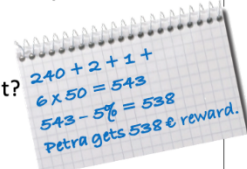 t?
240 + 2 + 1 +
6 x 50 = 543
543 – 5% = 538
Petra gets 538 € reward.